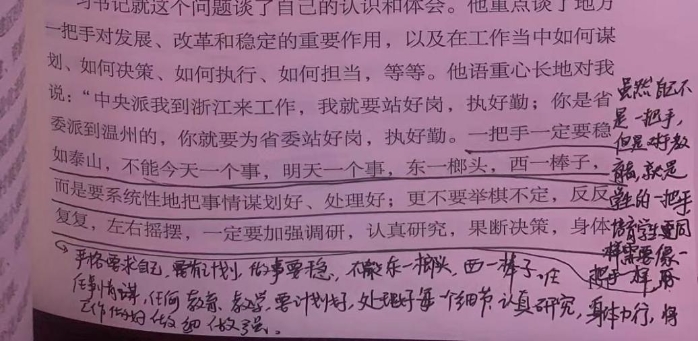 习书记就这个问题谈了自己的认识和体会。他重点谈了地方
一把手对发展、改革和稳定的重要作用，以及在工作当中如何谋
划、如何决策、如何执行、如何担当，等等。他语重心长地对我
说：“中央派我到浙江来工作，我就要站好岗，执好勤；你是省
委派到温州的，你就要为省委站好岗，执好勤。一把手一定要稳
如泰山，不能今天一个事，明天一个事，东一榔头，西一棒子，
而是要系统性地把事情谋划好、处理好；更不要举棋不定，反反
复复，左右摇摆，一定要加强调研，认真研究，果断决策，身体
虽然自己不
是一把手，
但是对于教
育，就是
学生的一把手
培育学生更同
样需要像一
把手一样，
严格要求自己，要有计划，做事要稳，不能东一榔头，西一棒子，
任事有谋，任何教育、教学，要计划好，处理好每个细节，认真研究，身体力行，将
工作做好做细做强。